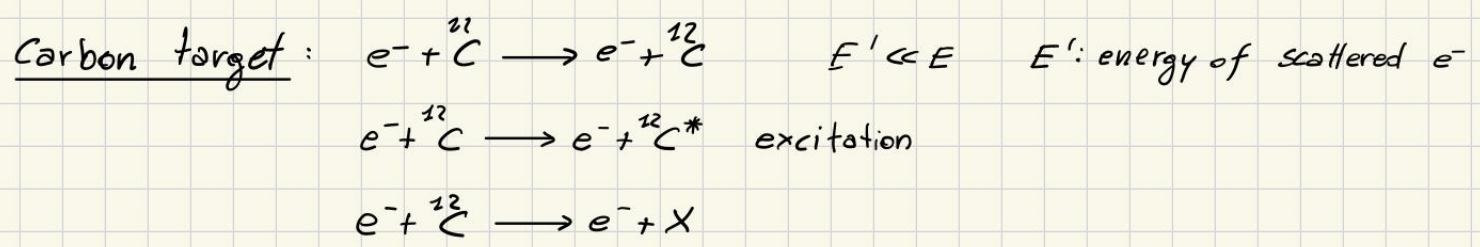 Carbon target: e⁻ + ²²C ⟶ e⁻ + ¹²C E' << E E': energy of scattered e⁻
e⁻ + ¹²C ⟶ e⁻ + ¹²C* excitation
e⁻ + ¹²C ⟶ e⁻ + X